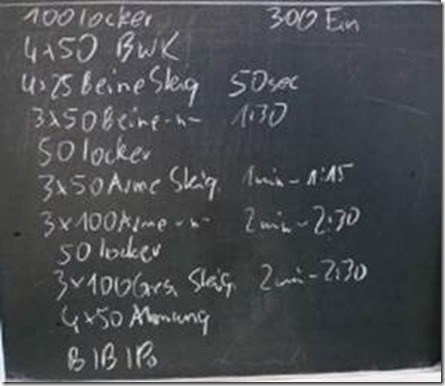 100 locker 300 Ein
4x50 BWK
4x25 Beine Steig 50sec
3x50 Beine -"- 1:30
50 locker
3x50 Arme Steig. 1min - 1:15
3x100 Arme -"- 2min - 2:30
50 locker
3x100 Ges. Steig. 2min - 2:30
4x50 Atmung
B|B|Po